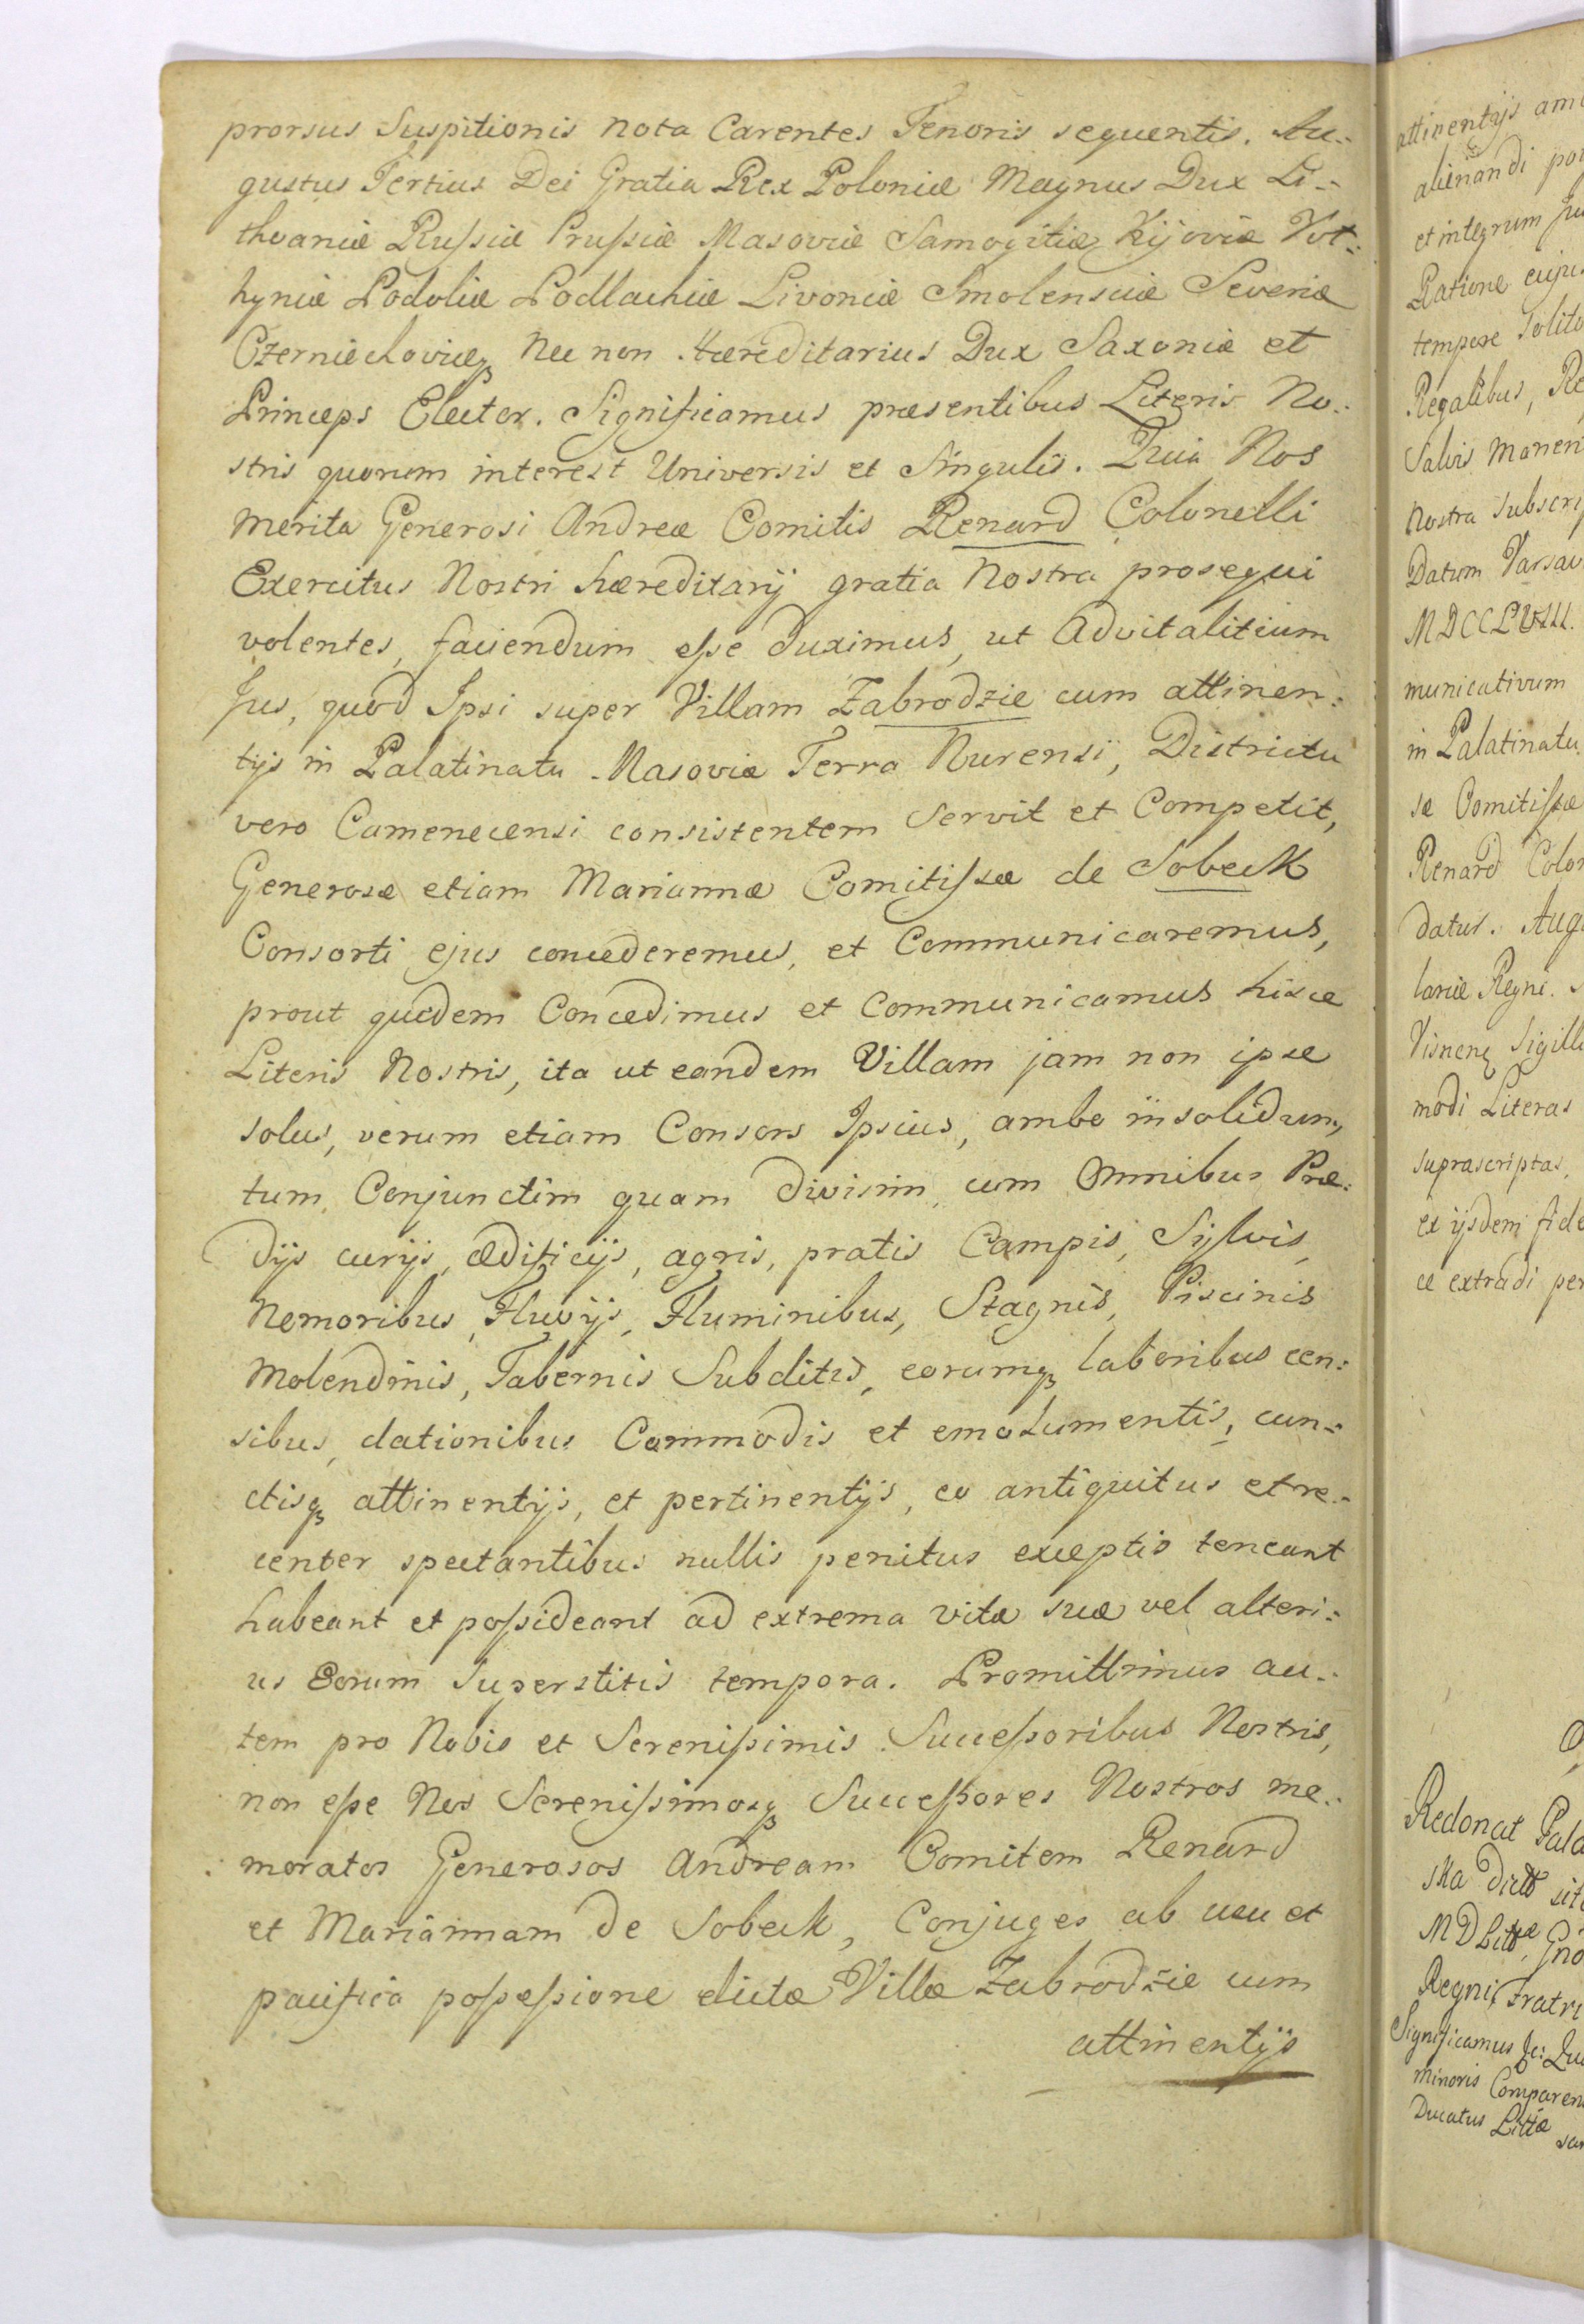 prorsus Suspitionis nota Carentes Tenoris sequentis. Au-
gustus Tertius Dei Gratia Rex Poloniæ Magnus Dux Li-
thvaniæ Russiæ Prussiæ Masoviæ Samogitiæ Kijoviæ Vot-
hyniæ Podoliæ Podlachiæ Livoniæ Smolensciæ Severiæ
Czerniechoviæq Nec non Hæreditarius Dux Saxoniæ et
Princeps Elector. Significamus præsentibus Literis No-
stris quorum interest Universis et Singulis. Quia Nos
merita Generosi Andreæ Comitis Renard Colonelli
Exercitus Nostri hæreditarij gratia Nostra prosequi
volentes, faciendum esse duximus, ut Advitalitium
Jus, quod Ipsi super Villam Zabrodzie cum attinen-
tijs in Palatinatu Masoviæ Terra Nurensi, Districtu
vero Camenecensi consistentem Servit et Competit,
Generosæ etiam Mariannæ Comitissæ de Sobeck
Consorti ejus concederemus, et Communicaremus,
prout quidem Concedimus et Communicamus hisce
Literis Nostris, ita ut eandem Villam jam non ipse
solus, verum etiam Consors Ipsius, ambo in solidum,
tum Conjunctim quam divisim, cum Omnibus Præ-
dijs curijs, ædificijs, agris, pratis Campis, Sylvis,
Nemoribus, Fluvijs, Fluminibus, Stagnis, Piscinis
Molendinis, Tabernis Subditis, eorumq laboribus cen-
sibus, dationibus Commodis et emolumentis, cun-
ctisq attinentijs, et pertinentijs, eo antiquitus et re-
center spectantibus nullis penitus exceptis teneant
habeant et possideant ad extrema vitæ suæ vel alteri-
us Eorum Superstitis tempora. Promittimus au-
tem pro Nobis et Serenissimis Successoribus Nostris,
non esse Nos Serenissimosq Successores Nostros me-
moratos Generosos Andream Comitem Renard
et Mariannam de Sobeck, Conjuges ab usu et
pacifica possessione dictæ Villæ Zabrodzie cum
attinentijs
attinentijs
alienandi
et integrum
Ratione
tempore solito
Regalibus,
Salvis
nostra
Datum
municativum
in Palatinatu
se Comitissæ
Renard
datus.
Regni.
modi Literas
suprascriptas,
ex ijsdem
ce extradi
Redonat
Regni
Significamus
minoris
Ducatus